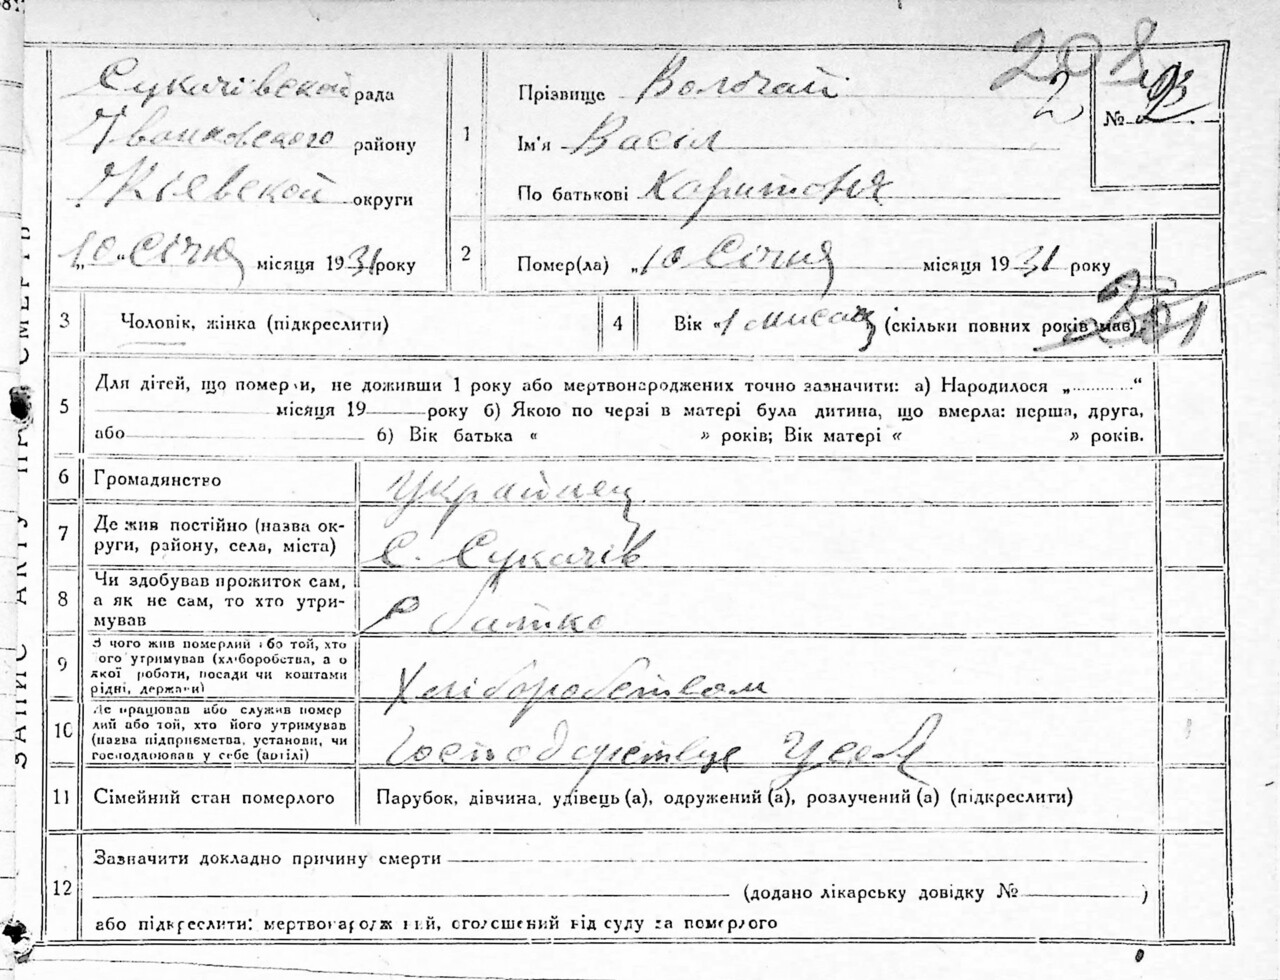 Сукачівской рада
Іванковского району
Кіевской округи
„10“ Січня місяця 1931 року
1
Прізвище Волочай
Ім'я Васіл
По батькові Харитонов
№ 2
208
2
2 Помер(ла) „10 Січня місяця 1931 року
3 Чоловік, жінка (підкреслити)
4 Вік „1 мисац (скільки повних років мав)
5 Для дітей, що померли, не доживши 1 року або мертвонароджених точно зазначити: а) Народилося „ “
місяця 19 року б) Якою по черзі в матері була дитина, що вмерла: перша, друга,
або б) Вік батька « » років; Вік матері « » років.
6 Громадянство Украйнец
7 Де жив постійно (назва ок-
руги, району, села, міста) С. Сукачів
8 Чи здобував прожиток сам,
а як не сам, то хто утри-
мував батько
9 З чого жив померлий або той, хто
його утримував (хліборобства, а о
якої роботи, посади чи коштами
рідні, держави) Хліборобством
10 Де працював або служив помер
лий або той, хто його утримував
(назва підприємства, установи, чи
господарював у себе (артілі)
11 Сімейний стан померлого Парубок, дівчина, удівець (а), одружений (а), розлучений (а) (підкреслити)
12 Зазначити докладно причину смерти
(додано лікарську довідку № )
або підкреслити: мертвонароджений, оголошений від суду за померлого
ЗАПИС АКТУ ПРО СМЕРТЬ